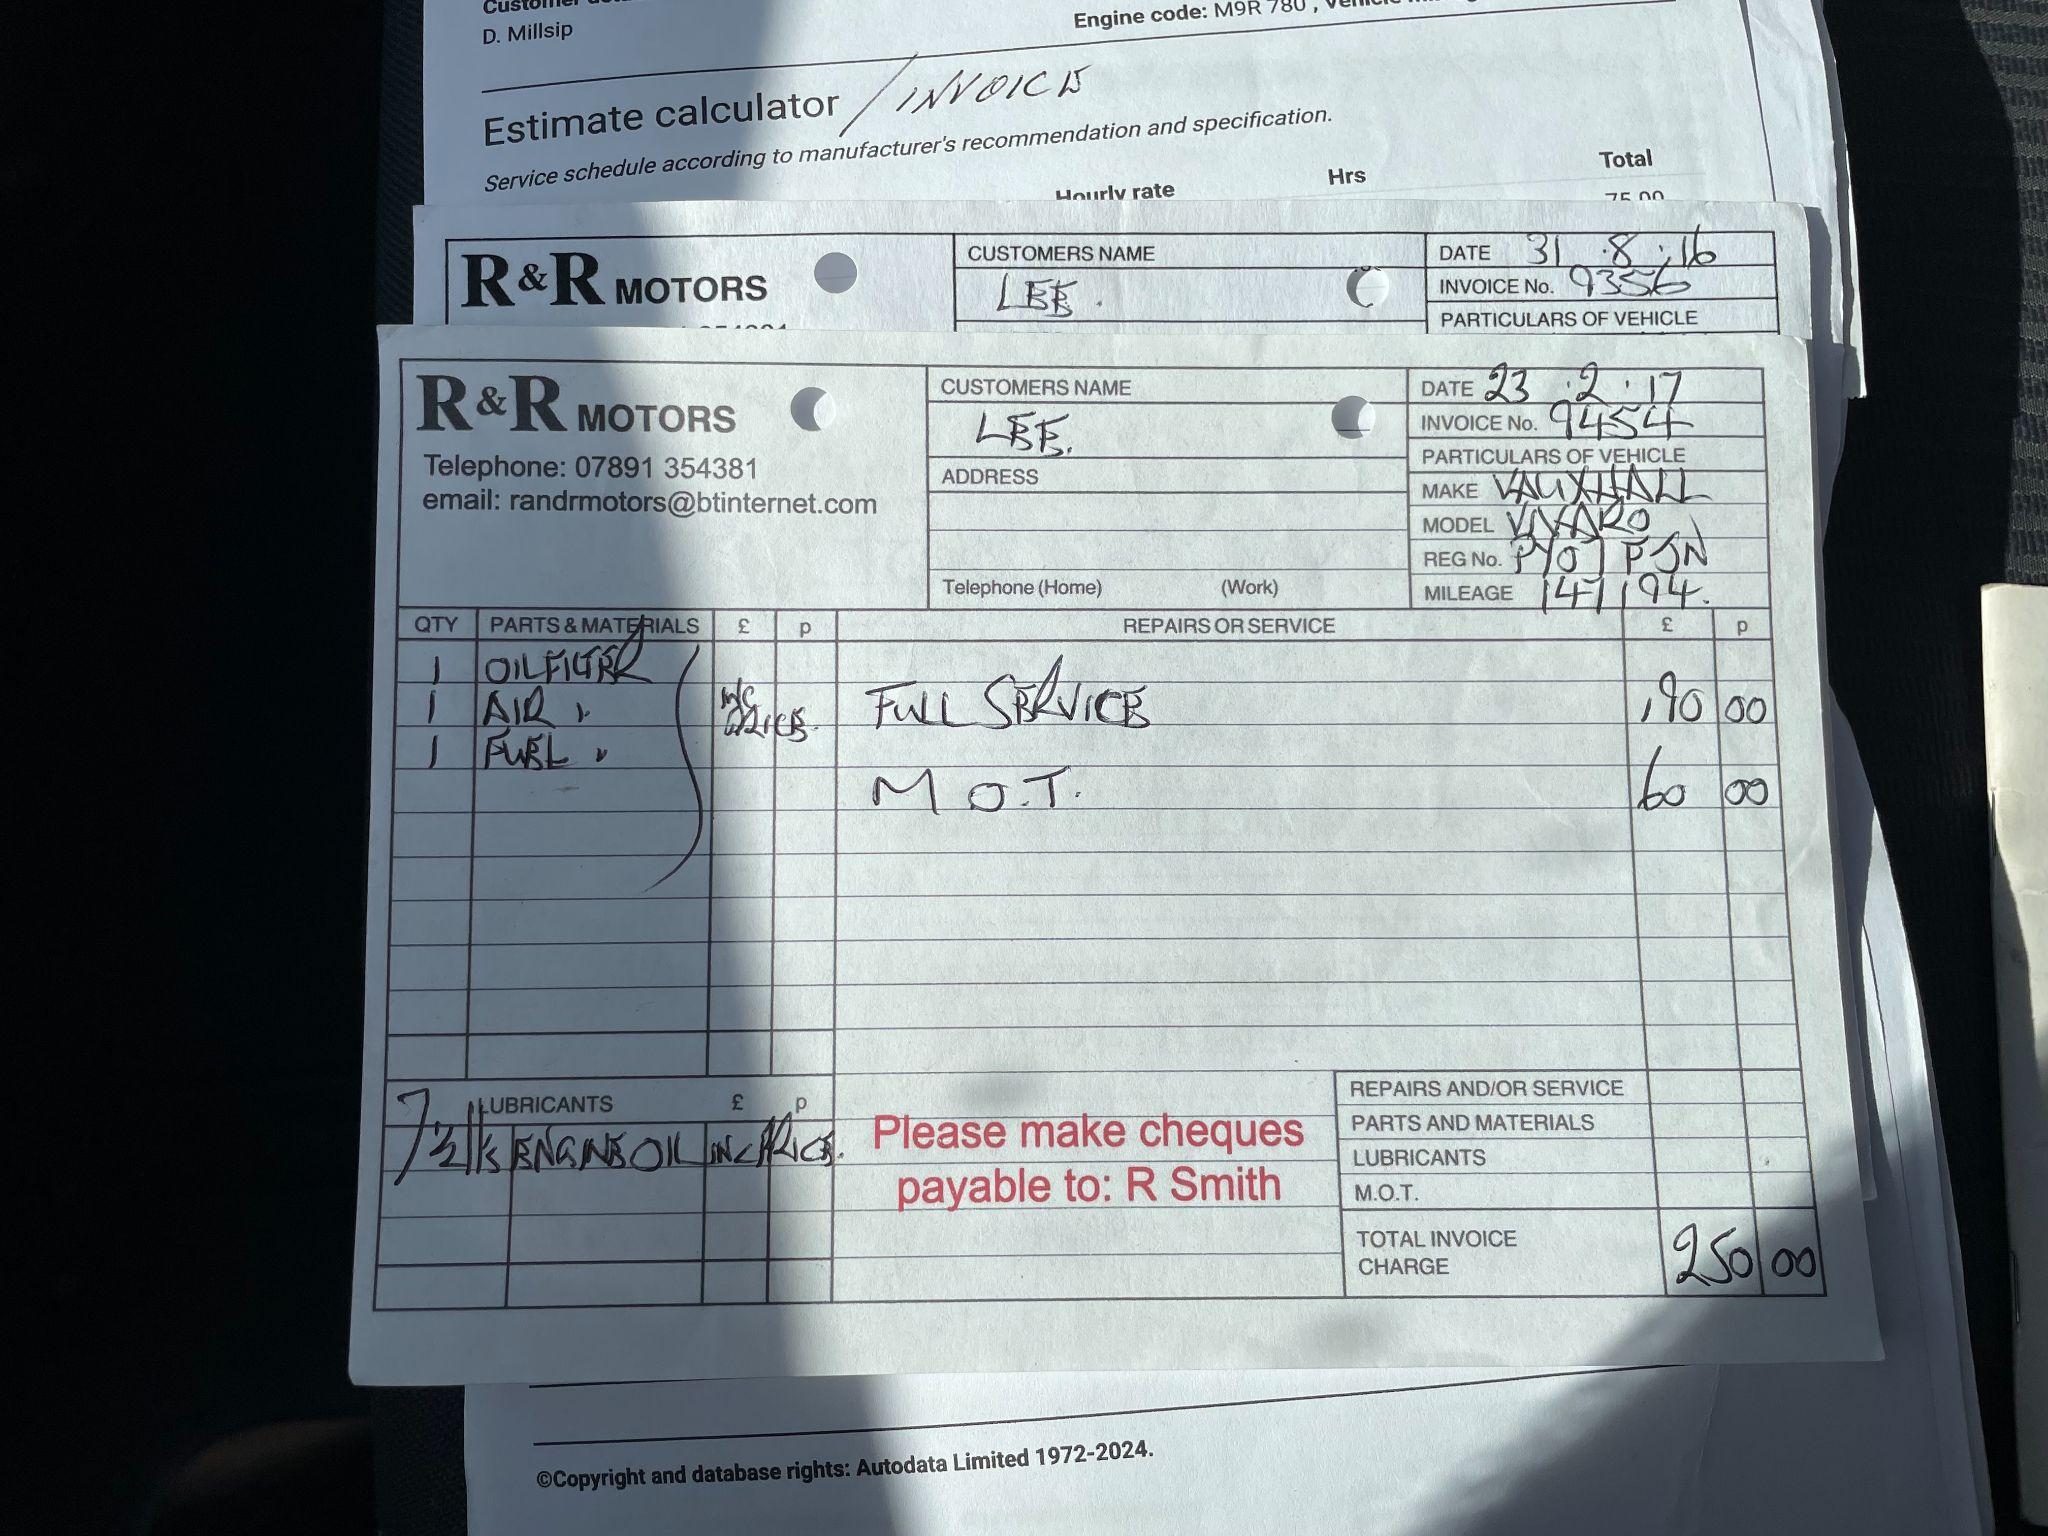 D. Millsip
Engine code: M9R 780 ,
Estimate calculator / INVOICE
Service schedule according to manufacturer's recommendation and specification.
Hourly rate Hrs Total
75.00
R&R MOTORS
CUSTOMERS NAME
LEE.
DATE 31.8.16
INVOICE No. 9356
PARTICULARS OF VEHICLE
R&R MOTORS
Telephone: 07891 354381
email: randrmotors@btinternet.com
CUSTOMERS NAME
LEE.
ADDRESS
Telephone (Home) (Work)
DATE 23.2.17
INVOICE No. 9454
PARTICULARS OF VEHICLE
MAKE VAUXHALL
MODEL VIVARO
REG No. PY07 PJN
MILEAGE 147194.
QTY PARTS & MATERIALS £ p REPAIRS OR SERVICE £ p
1 OIL FILTER
1 AIR " INC PRICE. FULL SERVICE 190 00
1 FUEL "
M.O.T. 60 00
LUBRICANTS £ p
7 1/2 lts ENGINE OIL INC PRICE.
Please make cheques
payable to: R Smith
REPAIRS AND/OR SERVICE
PARTS AND MATERIALS
LUBRICANTS
M.O.T.
TOTAL INVOICE
CHARGE 250 00
©Copyright and database rights: Autodata Limited 1972-2024.